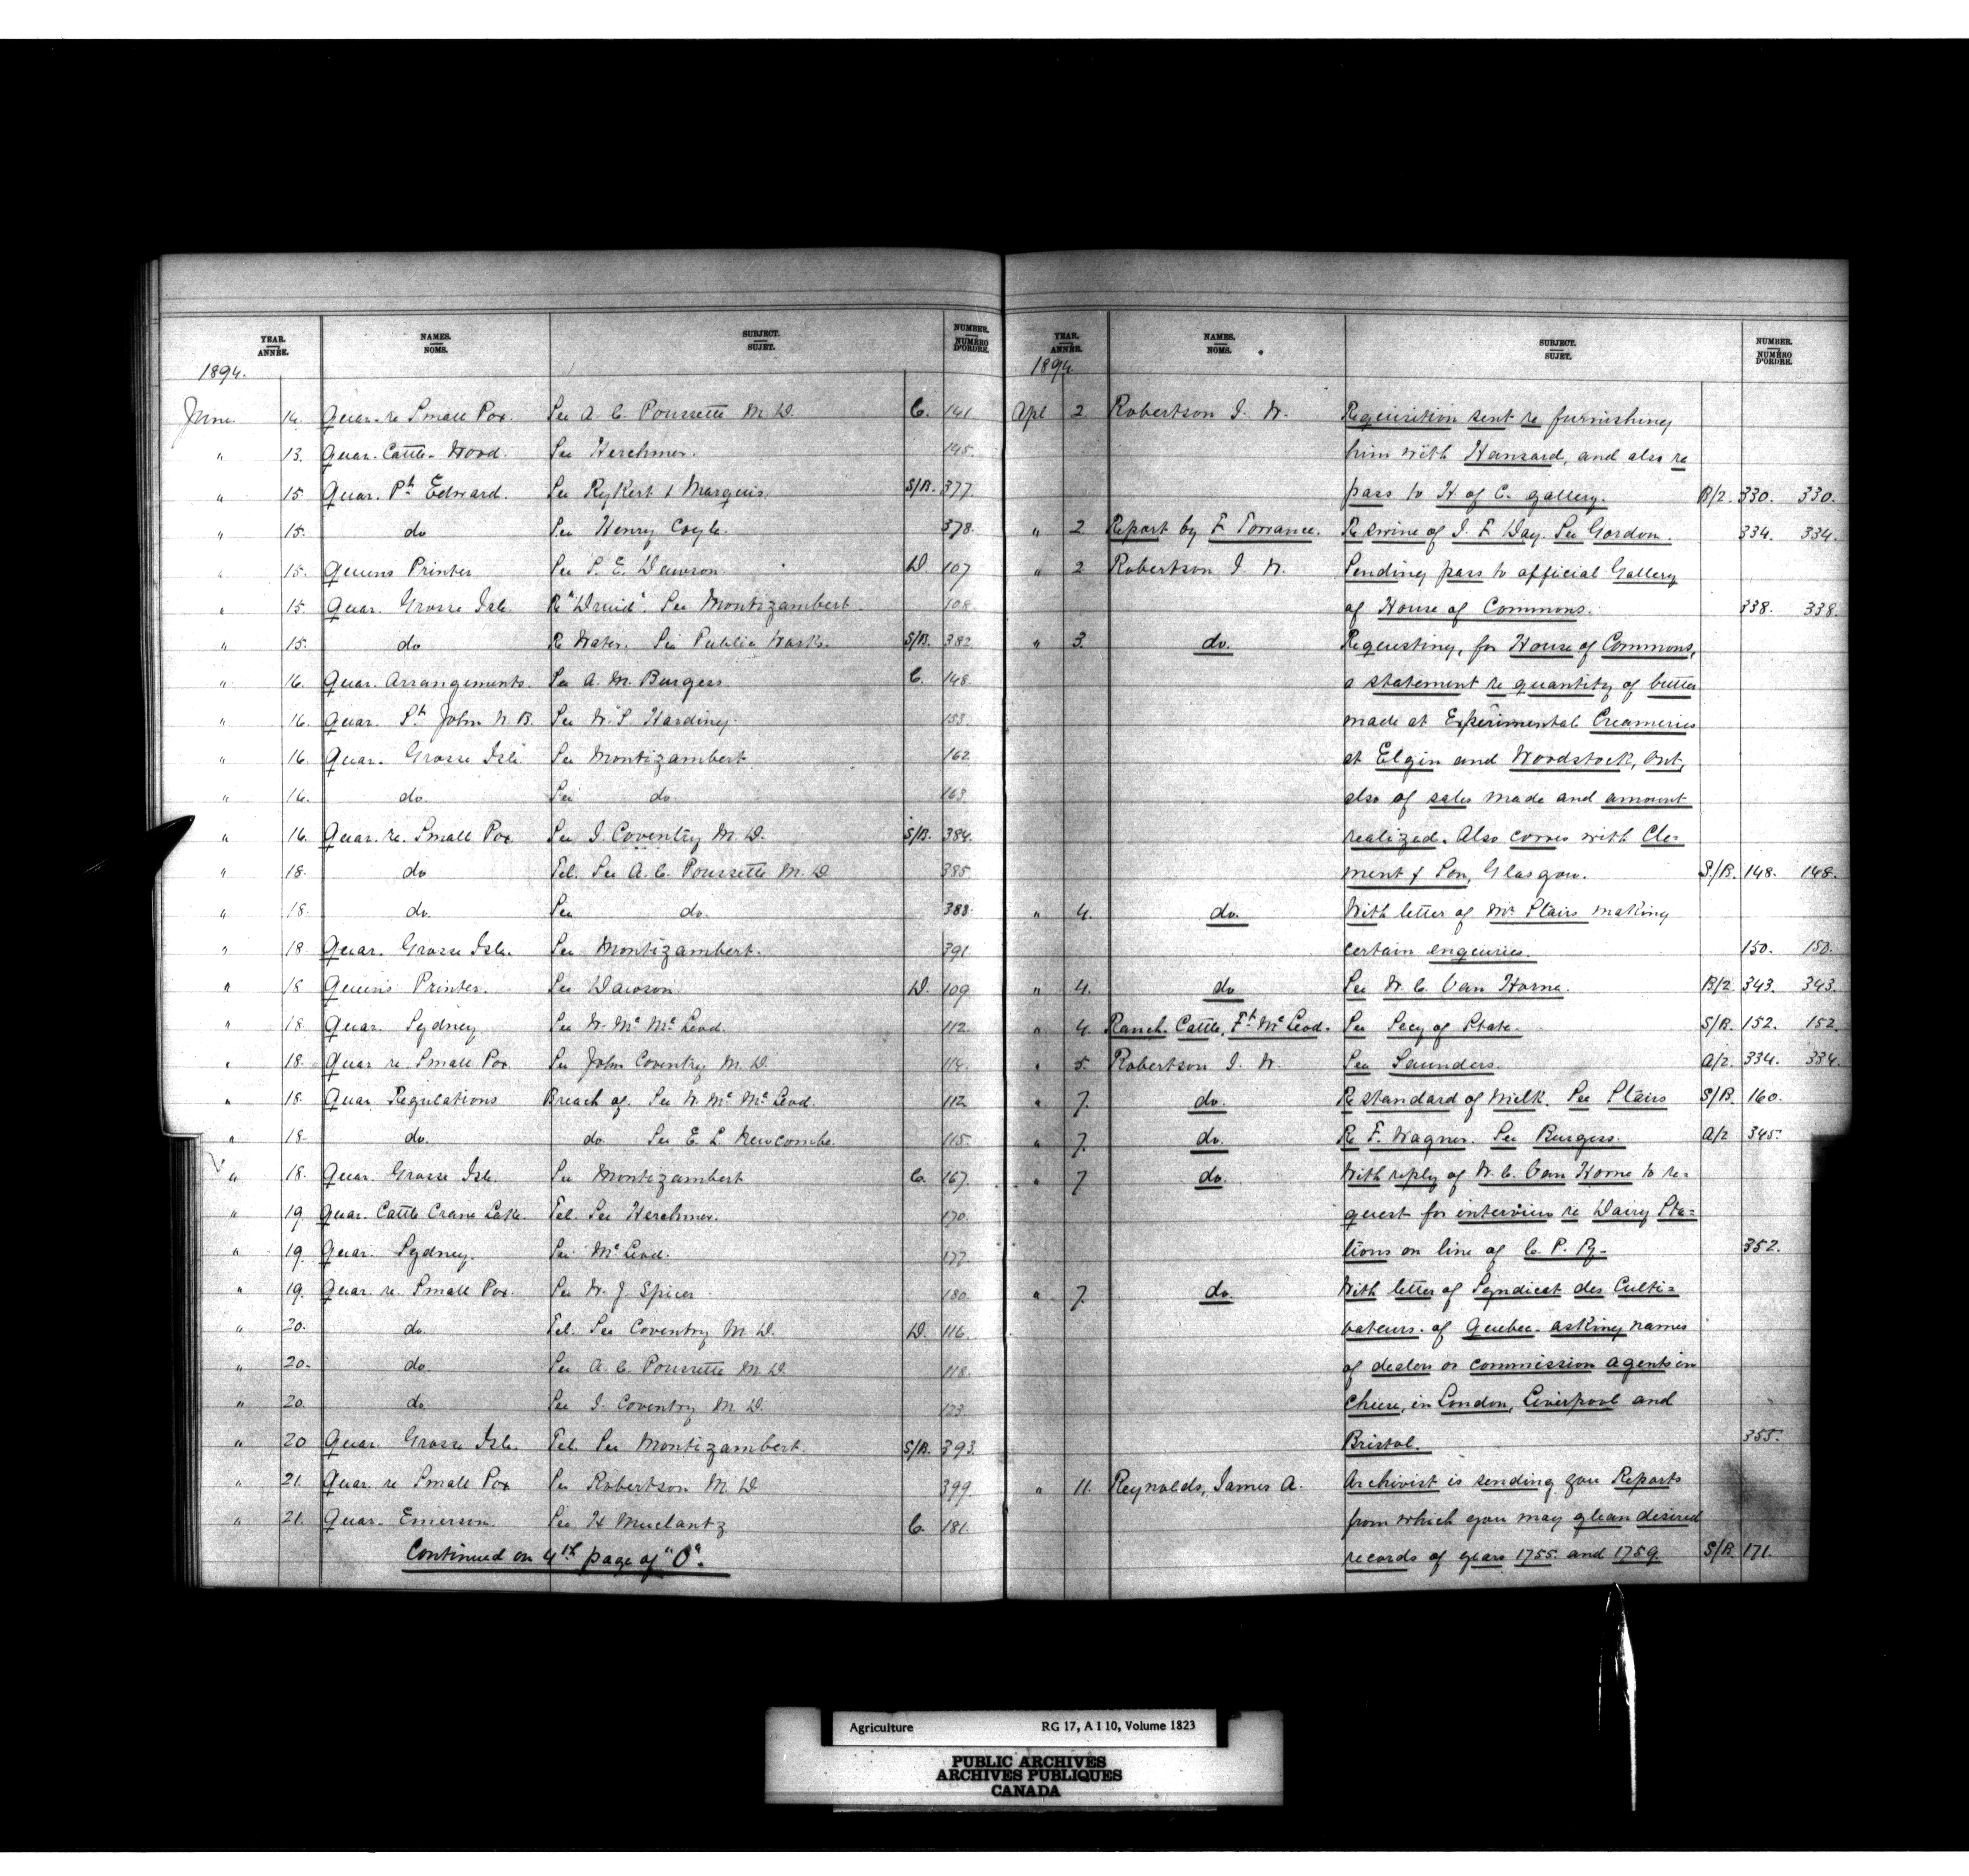 YEAR. ANNÉE. NAMES. NOMS. SUBJECT. SUJET. NUMBER. NUMÉRO D'ORDRE.
1894.
June 14. Quar. re Small Pox. See A. C. Poussette M. D. C. 141
" 13. Quar. Cattle - Wood. See Herchmer. 145.
" 15. Quar. Pt Edward. See Rykert & Marquis. S/B. 377.
" 15. do See Henry Coyle. 378.
" 15. Queens Printer See S. E. Dawson D. 107
" 15. Quar. Grosse Isle. Re "Druid". See Montizambert. 108
" 15. do Re Water. See Public Works. S/B. 382
" 16. Quar. Arrangements. See A. M. Burgess. C. 148.
" 16. Quar. St John N. B. See W. S. Harding. 153.
" 16. Quar. Grosse Isle See Montizambert 162
" 16. do. See do. 163
" 16. Quar. re. Small Pox See J. Coventry M. D. S/B. 384.
" 18. do Tel. See A. C. Poussette M. D 385
" 18. do. See do. 383.
" 18. Quar. Grosse Isle. See Montizambert. 391
" 18 Queen's Printer. See Dawson. D. 109
" 18. Quar. Sydney See W. Mc McLeod. 112.
" 18. Quar re Small Pox See John Coventry M. D. 114.
" 18. Quar Regulations Breach of. See W. Mc McLeod. 112
" 18. do. do See E. L. Newcombe. 115.
" 18. Quar. Grosse Isle. See Montizambert C. 167.
" 19 Quar. Cattle Crane Lake. Tel. See Herchmer. 170.
" 19. Quar. Sydney. See McLeod. 177.
" 19. Quar. re. Small Pox. See W. J. Spicer 180.
" 20. do. Tel. See Coventry M. D. D. 116.
" 20. do. See A. C. Poussette M. D. 118.
" 20. do. See J. Coventry M. D. 123.
" 20 Quar. Grosse Isle. Tel. See Montizambert. S/B. 393.
" 21. Quar. re Small Pox See Robertson M. D. 399.
" 21. Quar. Emerson. See H C. 181.
Continued on 4th page of "O".
YEAR. ANNÉE. NAMES. NOMS. SUBJECT. SUJET. NUMBER. NUMÉRO D'ORDRE.
1894.
Apl 2 Robertson J. W. Requisition sent re furnishing
him with Hansard, and also re
pass to H. of C. gallery. B/2. 330. 330.
" 2 Report by F Torrance. Re swine of J. F Day. See Gordon. 334. 334.
" 2 Robertson J. W. Sending pass to official Gallery
of House of Commons. 338. 338.
" 3. do. Requesting, for House of Commons,
a statement re quantity of butter
made at Experimental Creameries
at Elgin and Woodstock, Ont,
also of sales made and amount
realized. Also corres with Cle-
ment & Son, Glasgow. S/B. 148. 148.
" 4. do. With letter of Mr Stairs making
certain enquiries. 150. 150.
" 4. do See W. C. Van Horne. B/2. 343. 343.
" 4. Ranch. Cattle, Ft McLeod. See Secy of State. S/B. 152. 152.
" 5. Robertson J. W. See Saunders. A/2. 334. 334.
" 7. do. Re standard of Milk. See Stairs S/B. 160.
" 7. do. Re F. Wagner. See Burgess. A/2 345.
" 7 do. With reply of W. C. Van Horne to re-
quest for interview re Dairy Sta-
tions on line of C. P. Ry. 352.
" 7. do. With letter of Syndicat des Culti-
vateurs. of Quebec. asking names
of dealers or commission agents in
cheese, in London, Liverpool and
Bristol. 355.
" 11. Reynolds, James A. Archivist is sending you Reports
from which you may glean desired
records of years 1755. and 1759. S/B. 171.
Agriculture RG 17, A I 10, Volume 1823
PUBLIC ARCHIVES
ARCHIVES PUBLIQUES
CANADA